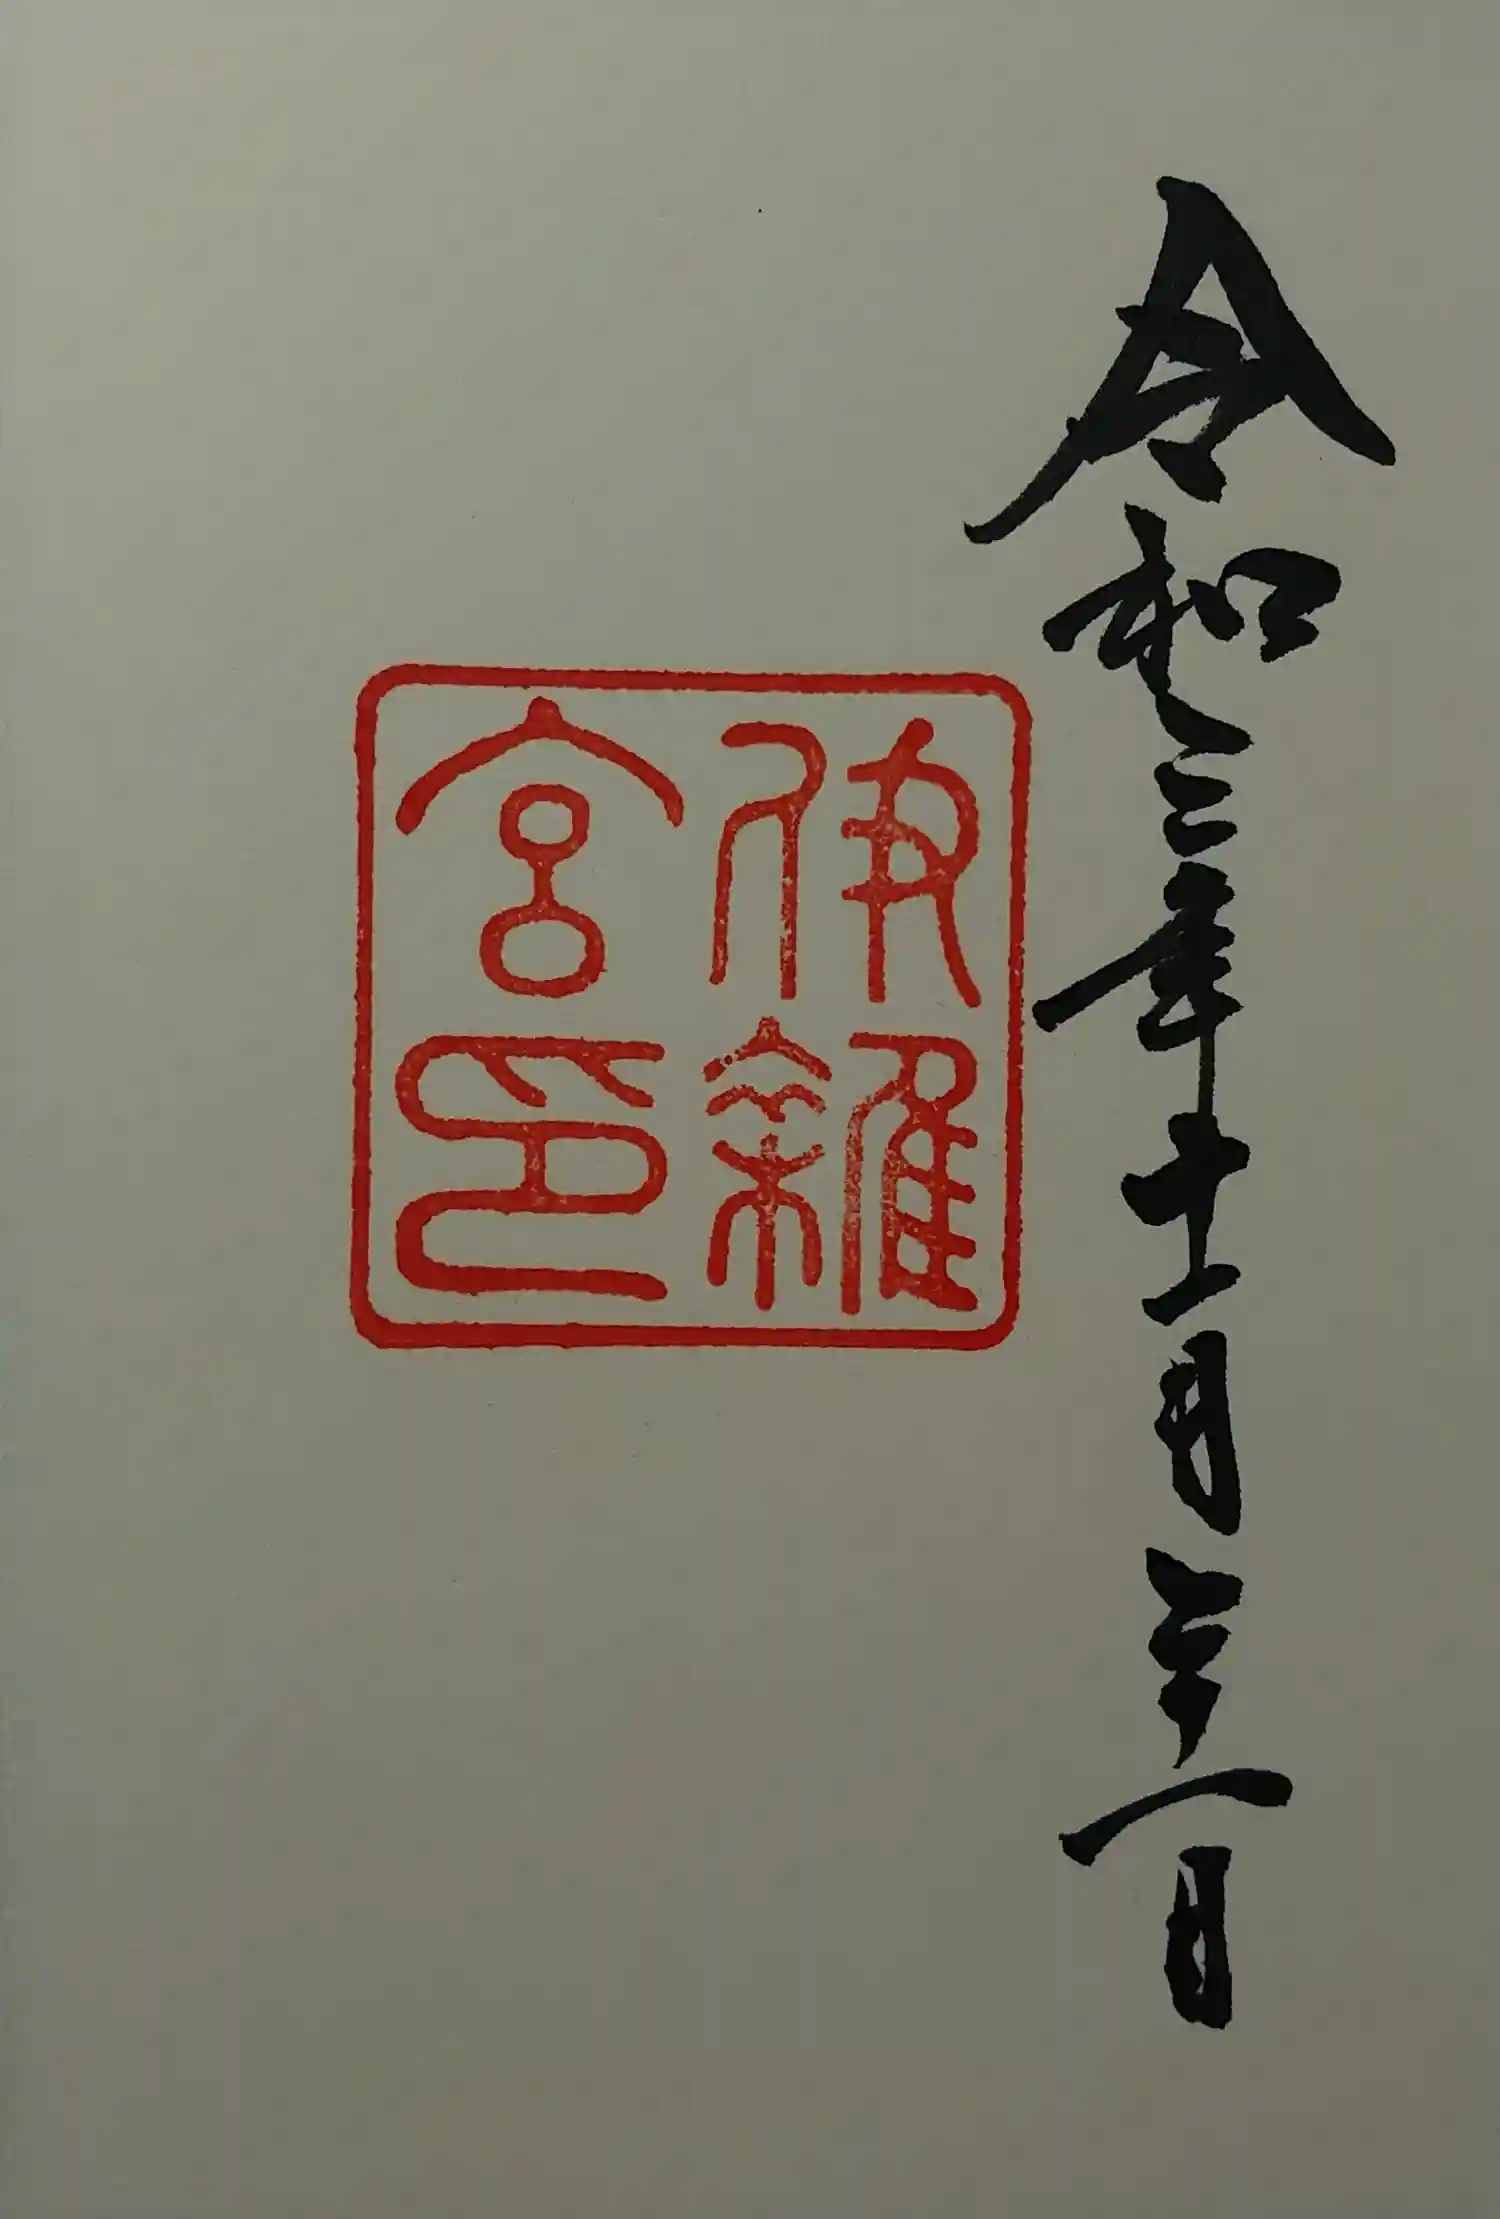 令和三年十一月二十一日
伊雜宮印